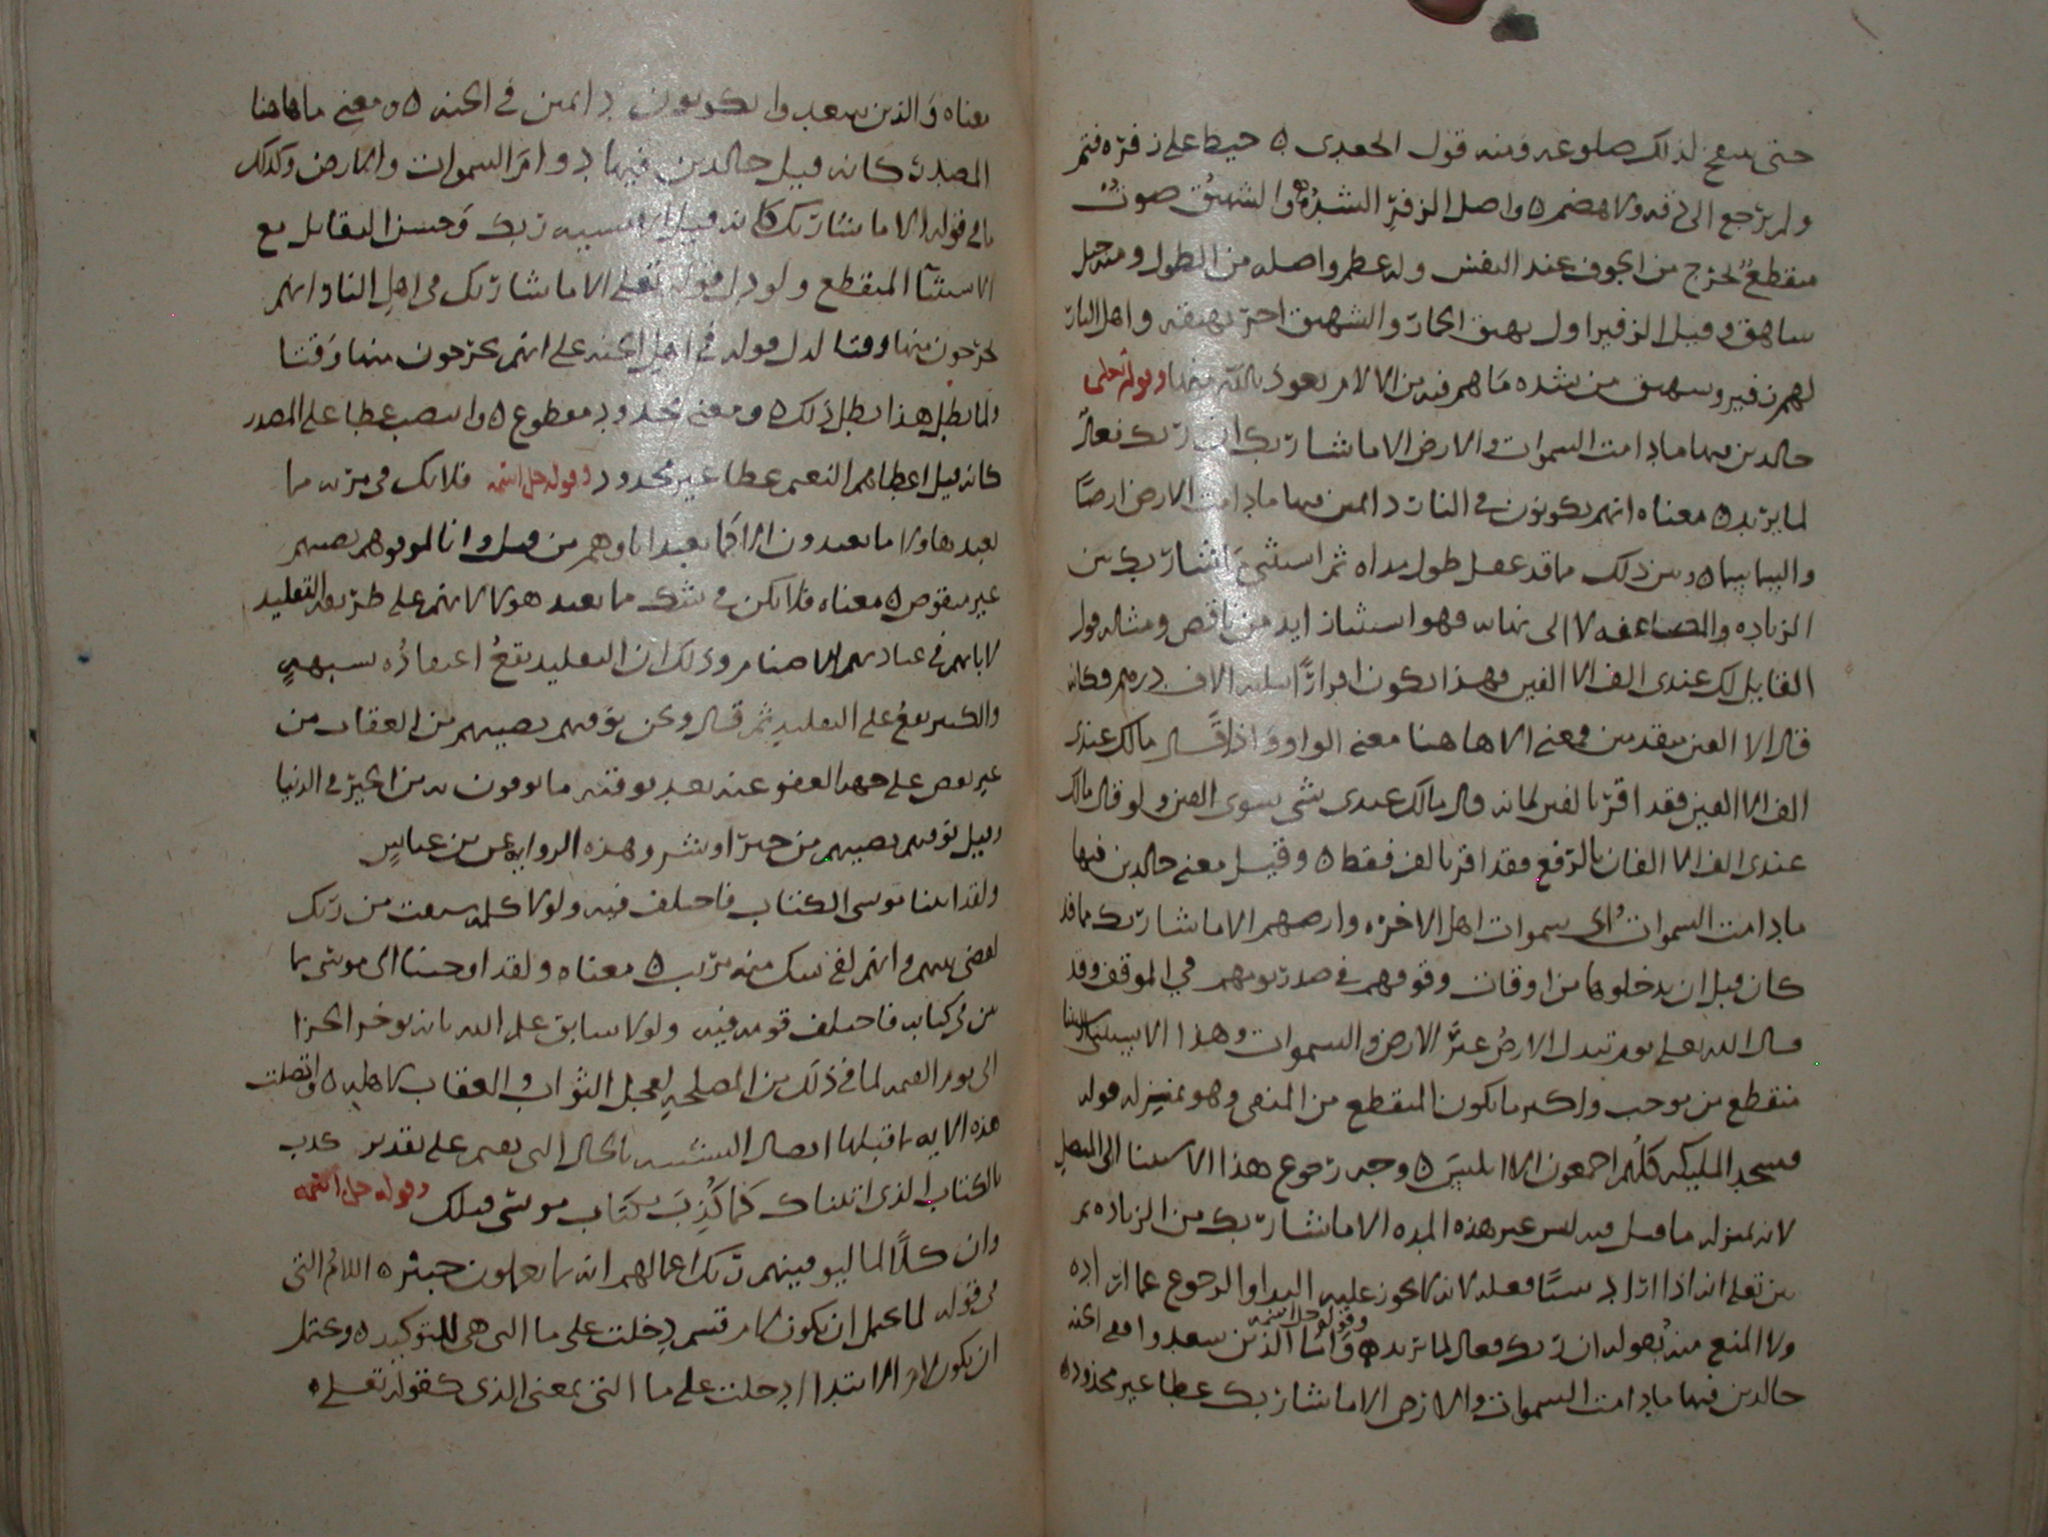 حتى ينتفخ لذلك ضلوعه ومنه قول الجعدي ه خيط على زفرة فتم
ولم يرجع الى دقه ولا هضم ه واصل الزفر الشدة ه والشهيق صوت
منقطع يخرج من الجوف عند النفس وله عظم واصله من الطول ومنه جبل
شاهق وقيل الزفير اول نهيق الحمار والشهيق اخر نهيقه واهل النار
لهم زفير وشهيق من شده ما هم فيه من الالام نعوذ بالله منها وقوله تعلى
خالدين فيها مادامت السموات والارض الا ما شا ربك ان ربك فعال
لما يريد ه معناه انهم يكونون في النار دايمين فيها مادامت الارض ارضا
وذلك ما قد عقل طول مداه ثم استثنى ما شا ربك من
الزياده والمضاعفه لا الى نهايه فهو استثنا زايد من ناقص ومثاله قول
القايل لك عندي الف الا الفين فهذا يكون اقرارا بثلثه الاف درهم فكانه
قال الا الفين متقدمين ومعنى الا هاهنا معنى الواو واذا قال مالك عندي
الف الا الفين فقد اقر بالفين لانه قال مالك عندي شي سوى الفين ولو قال مالك
عندي الف الا الفان بالرفع فقد اقر بالف فقط ه وقيل معنى خالدين فيها
مادامت السموات اى سموات اهل الاخره وارضهم الا ما شا ربك مما قد
كان قبل ان يدخلوها من اوقات وقوفهم في صدر يومهم في الموقف وقد
قال الله تعلى يوم تبدل الارض غير الارض والسموات وهذا الاستثنا
منقطع من موجب واكثر ما يكون المنقطع من المنفي وهو بمنزله قوله
فسجد المليكه كلهم اجمعون الا ابليس ه وجه رجوع هذا الاستثنا الى المتصل
لانه بمنزله ما قيل فيه ليس غير هذه المده الا ما شا ربك من الزياده ثم
بين تعلى انه اذا اراد شيا فعله لانه لا يجوز عليه البدا والرجوع عما اراده
ولا المنع منه بقوله ان ربك فعال لما يريد ه وقوله جل اسمه واما الذين سعدوا ففي الجنه
خالدين فيها مادامت السموات والارض الا ما شا ربك عطا غير مجذوذ ه
معناه والذين سعدوا يكونون دايمين في الجنه ه ومعنى ما هاهنا
المصدر كانه قيل خالدين فيها دوام السموات والارض وكذلك
ما في قوله الا ما شا ربك كانه قيل الا مشييه ربك وحسن التقابل مع
الاستثنا المنقطع ولو دل قوله تعلى الا ما شا ربك في اهل النار انهم
يخرجون منها وقتا لدل قوله في اهل الجنه على انهم يخرجون منها وقتا
ولما بطل هذا بطل ذلك ه ومعنى مجذوذ مقطوع ه وانتصب عطا على المصدر
كانه قيل اعطاهم النعيم عطا غير مجذوذ وقوله جل اسمه فلا تك في مريه مما
يعبد هاولا ما يعبدون الا كما يعبد اباوهم من قبل وانا لموفوهم نصيبهم
غير منقوص ه معناه فلا تكن في شك ما يعبد هولا لانهم على طريقه التقليد
لابايهم في عبادتهم الاصنام وذلك ان التقليد يقع اعتقاده بشبهه
والكبير يقع على التقليد ثم قال ونحن نوفيهم نصيبهم من العقاب من
غير نقص على جهه العفو عنه بعد توفيه ما يوفون به من الخير في الدنيا
وقيل نوفيهم نصيبهم من خير او شر وهذه الروايه عن بن عباس
ولقد اتينا موسى الكتاب فاختلف فيه ولولا كلمه سبقت من ربك
لقضى بينهم وانهم لفي شك منه مريب ه معناه ولقد اوحينا الى موسى بما
بين في كتابه فاختلف قومه فيه ولولا سابق علم الله بانه يوخر الجزا
الى يوم القيمه لما في ذلك من المصلحه لعجل الثواب والعقاب لاهله ه واتصلت
هذه الايه بما قبلها اتصال التشبيه بالحال التي تعم على تقدير كذب
بالكتاب الذي اتيناك كما كذب بكتاب موسى قبلك وقوله جل اسمه
وان كلا لما ليوفينهم ربك اعمالهم انه بما يعملون خبير ه اللام التي
في قوله لما يحتمل ان تكون لام قسم دخلت على ما التي هي للتوكيد ه ويحتمل
ان يكون لام الابتدا دخلت على ما التي بمعنى الذي كقوله تعلى ه